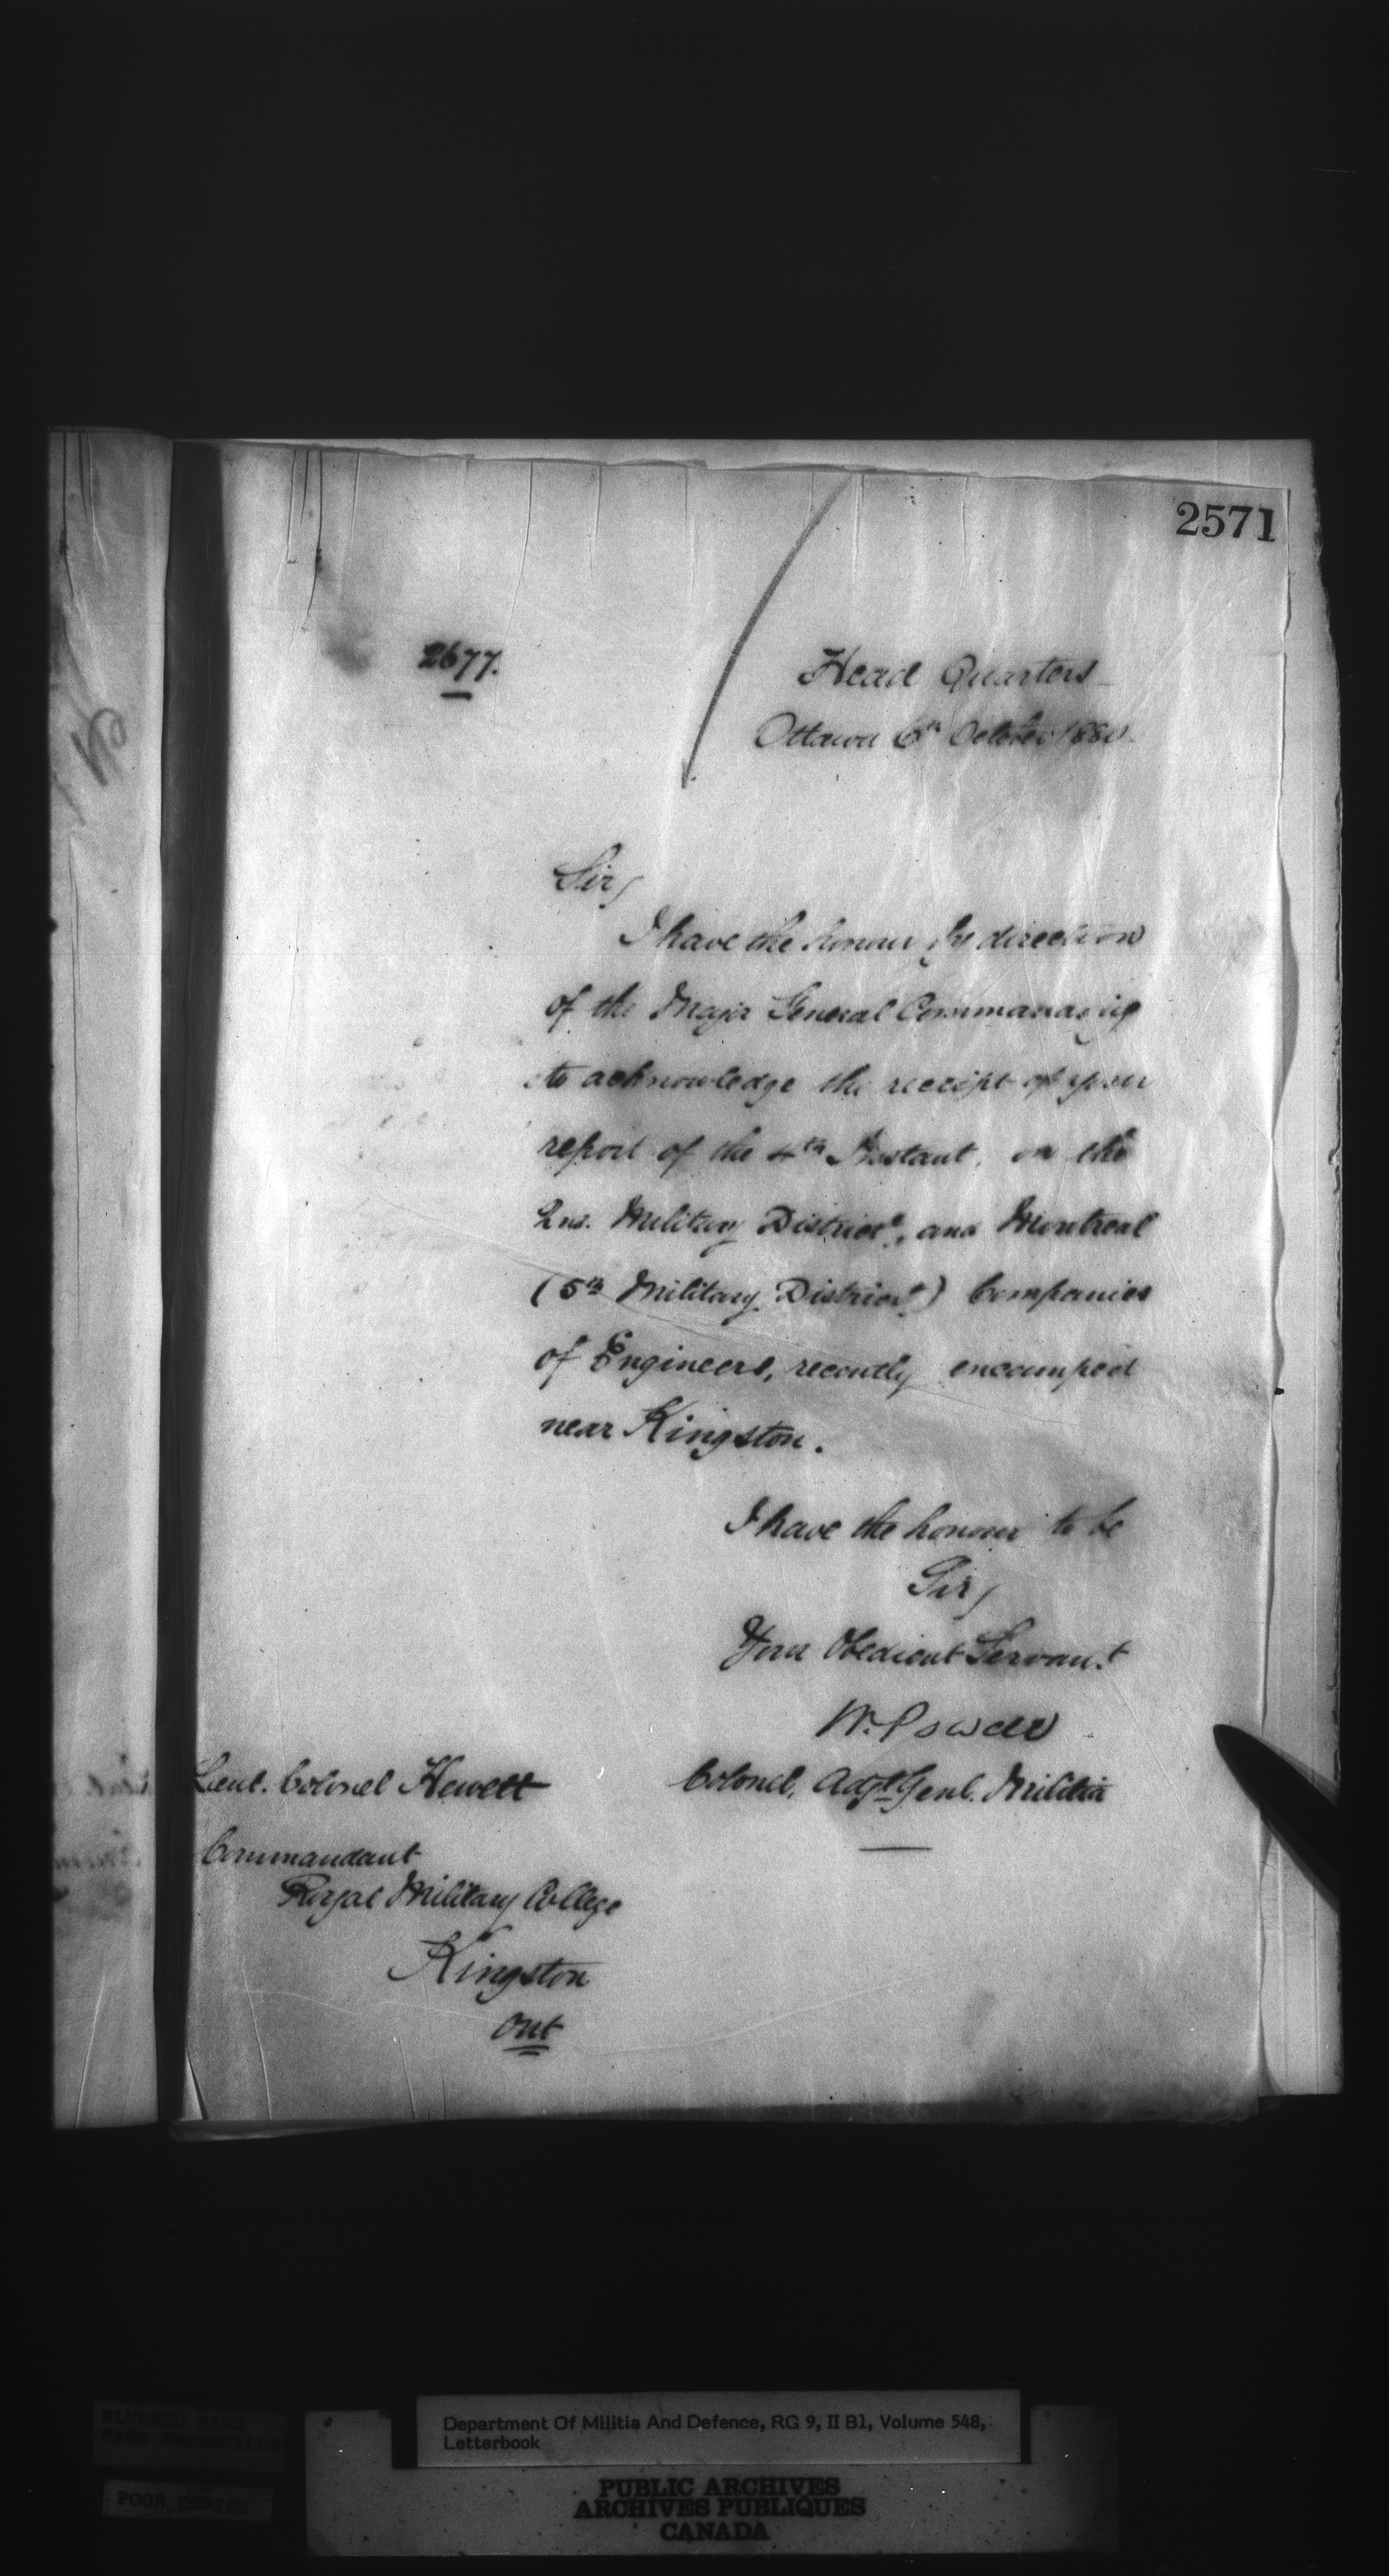 2571
2677.
Head Quarters
Ottawa 6th October 1880.
Sir,
I have the honour by direction
of the Major General Commanding
to acknowledge the receipt of your
report of the 4th Instant, on the
2nd. Military District, and Montreal
(5th Military District) Companies
of Engineers, recently encamped
near Kingston.
I have the honour to be
Sir,
Your Obedient Servant
W. Powell
Colonel, Adjt Genl. Militia
Lieut. Colonel Hewett
Commandant
Royal Military College
Kingston
Ont
BLURRED PAGE
PAGE
POOR COPIES
Department Of Militia And Defence, RG 9, II B1, Volume 548,
Letterbook
PUBLIC ARCHIVES
ARCHIVES PUBLIQUES
CANADA